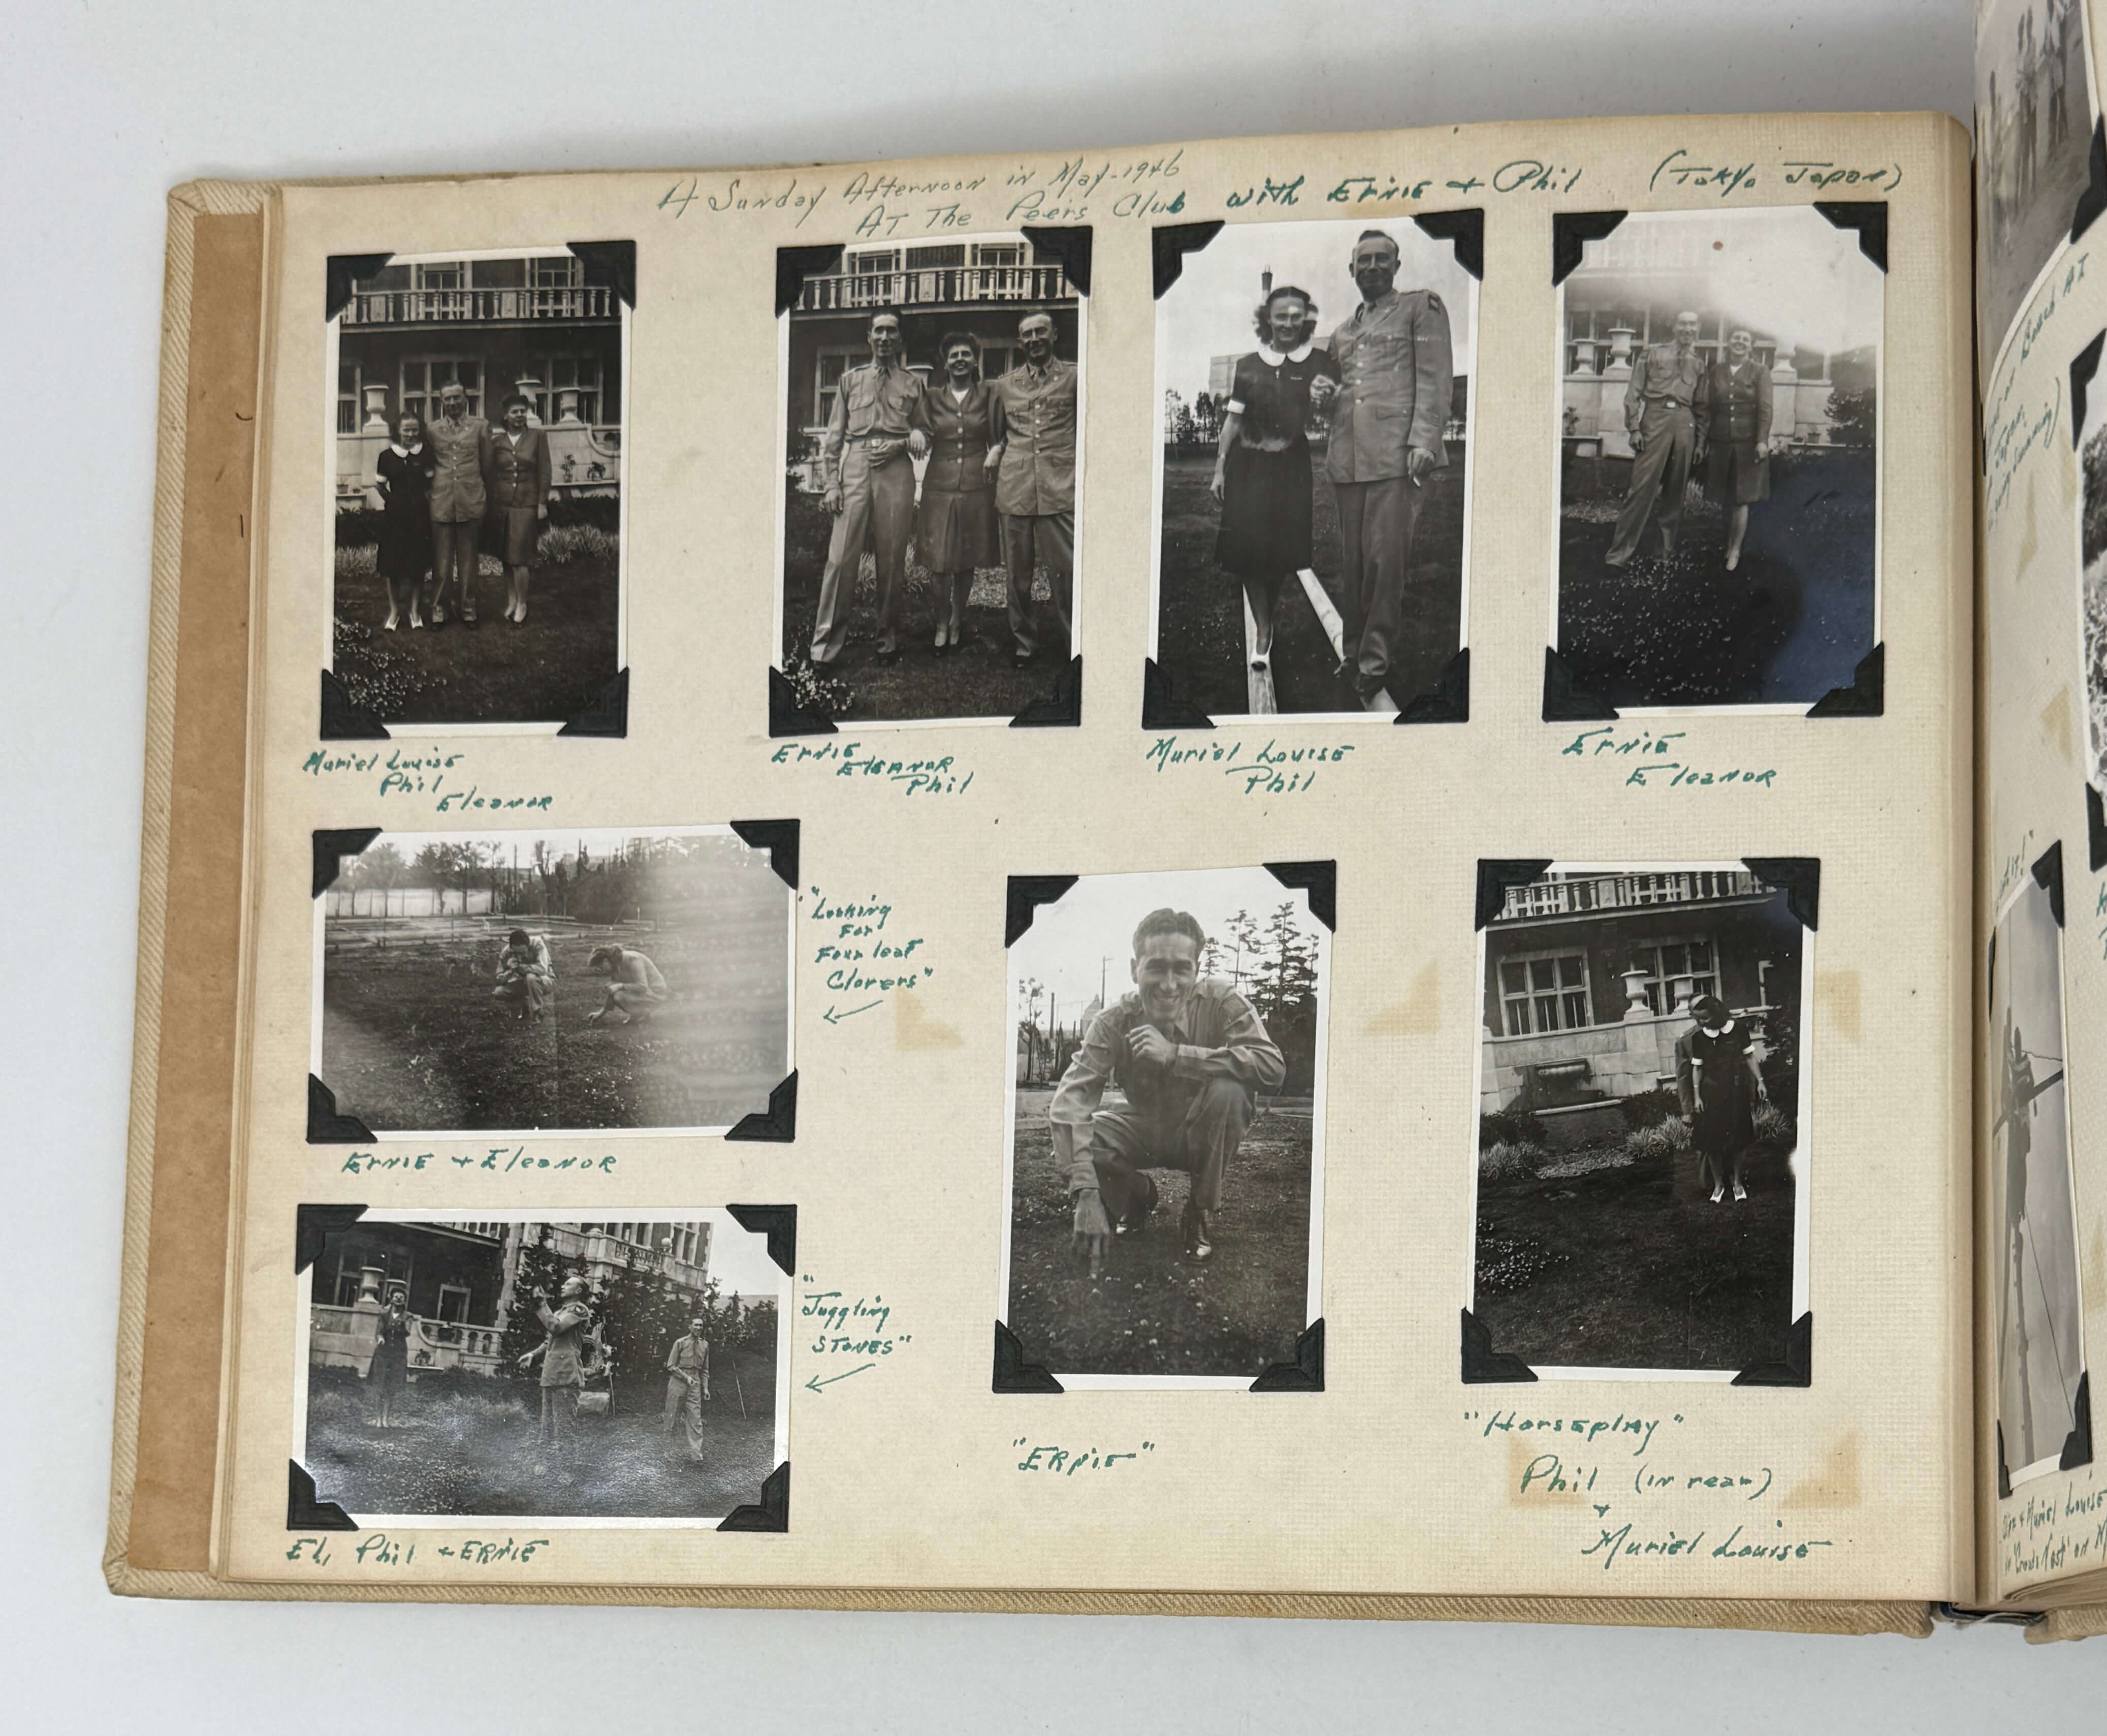 A Sunday Afternoon in May-1946
AT The Peers Club with ERNIE + Phil (Tokyo Japan)
Muriel Louise
Phil
Eleanor
ERNIE
ElEANOR
Phil
Muriel Louise
Phil
ERNIE
Eleanor
"Looking
For
Four leaf
Clovers"
ERNIE + Eleanor
"Juggling
STONES"
El, Phil + ERNIE
"ERNIE"
"Horseplay"
Phil (in rear)
+
Muriel Louise
Beach AT
+ Muriel Louise